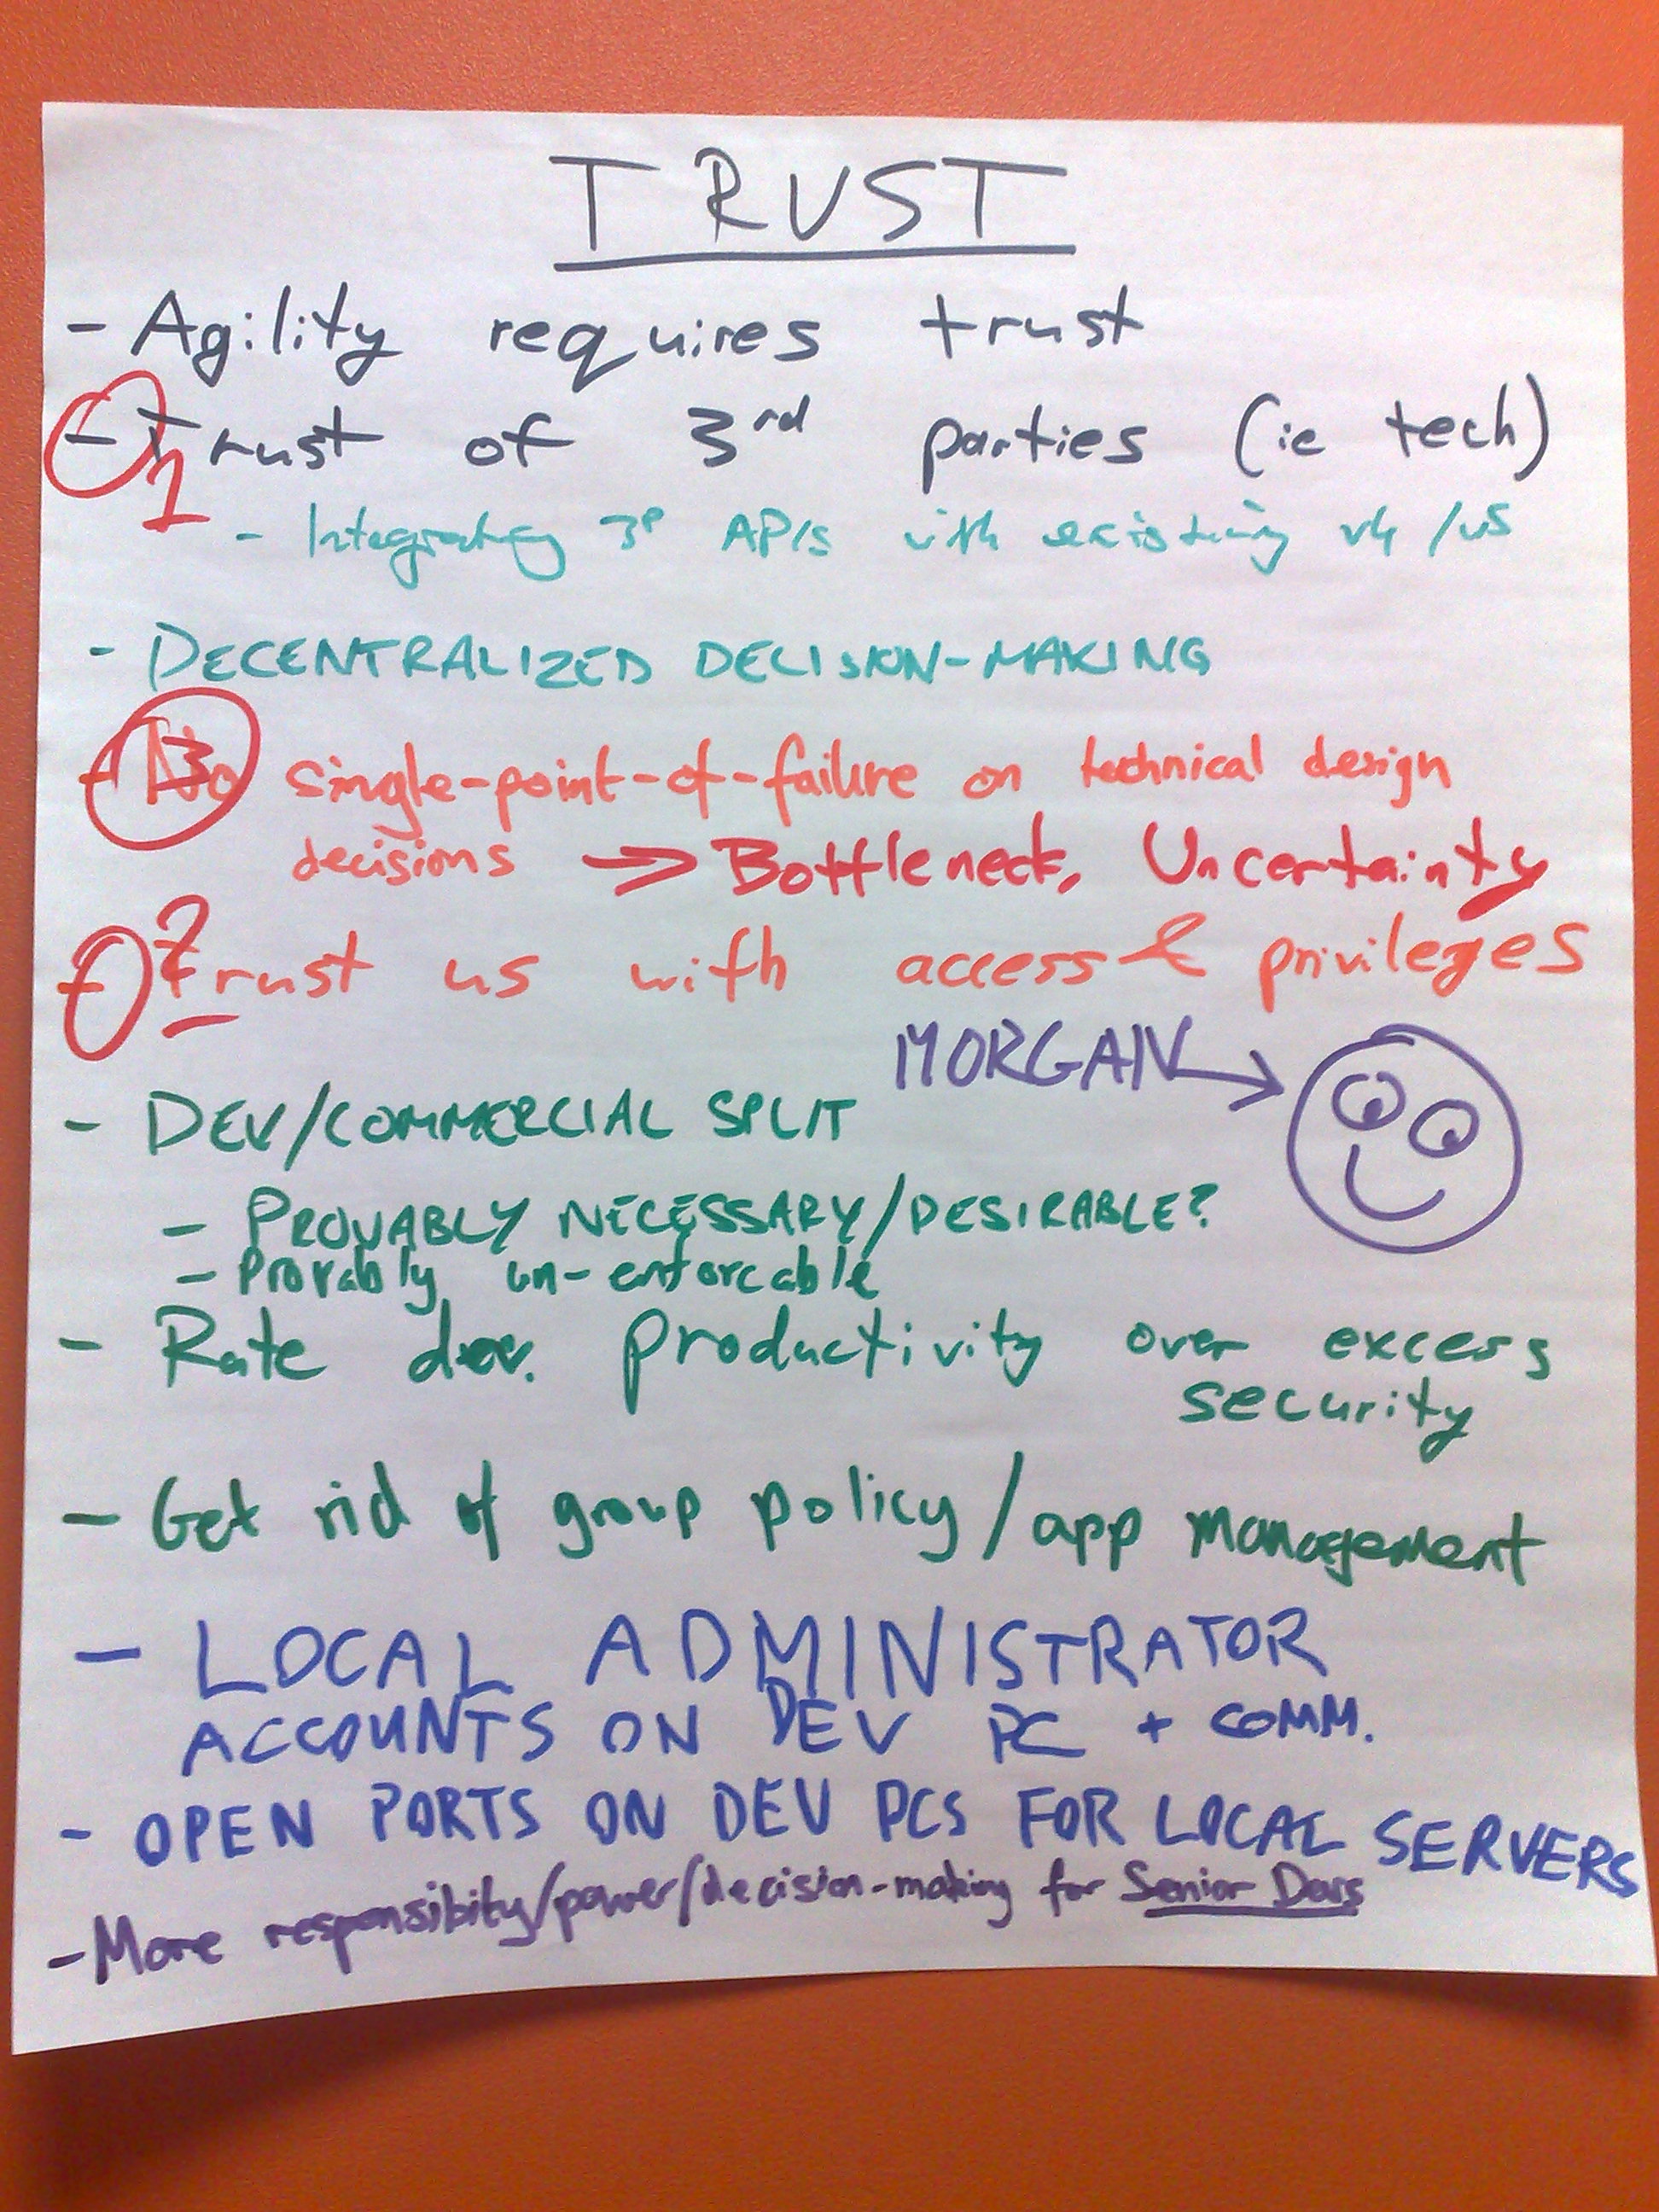 TRUST
- Agility requires trust
- Trust of 3rd parties (ie tech)
1
- Integrating 3P APIs with existing v4/v5
- DECENTRALIZED DECISION-MAKING
- No single-point-of-failure on technical design
3
decisions → Bottleneck, Uncertainty
2
- Trust us with access & privileges
MORGAN →
- DEV/COMMERCIAL SPLIT
- PROVABLY NECESSARY/DESIRABLE?
- Provably un-enforcable
- Rate dev. productivity over excess
security
- Get rid of group policy/app management
- LOCAL ADMINISTRATOR
ACCOUNTS ON DEV PC + COMM.
- OPEN PORTS ON DEV PCS FOR LOCAL SERVERS
- More responsibity/power/decision-making for Senior Devs